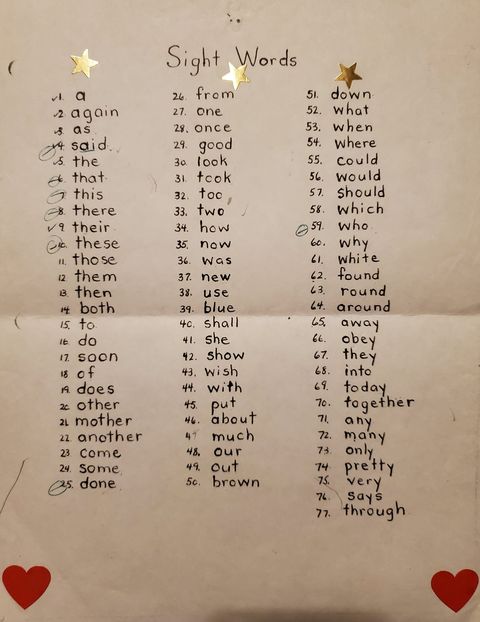 Sight Words
1. a
2. again
3. as
4. said
5. the
6. that
7. this
8. there
9. their
10. these
11. those
12. them
13. then
14. both
15. to
16. do
17. soon
18. of
19. does
20. other
21. mother
22. another
23. come
24. some
25. done
26. from
27. one
28. once
29. good
30. look
31. took
32. too
33. two
34. how
35. now
36. was
37. new
38. use
39. blue
40. shall
41. she
42. show
43. wish
44. with
45. put
46. about
47. much
48. our
49. out
50. brown
51. down
52. what
53. when
54. where
55. could
56. would
57. should
58. which
59. who
60. why
61. white
62. found
63. round
64. around
65. away
66. obey
67. they
68. into
69. today
70. together
71. any
72. many
73. only
74. pretty
75. very
76. says
77. through